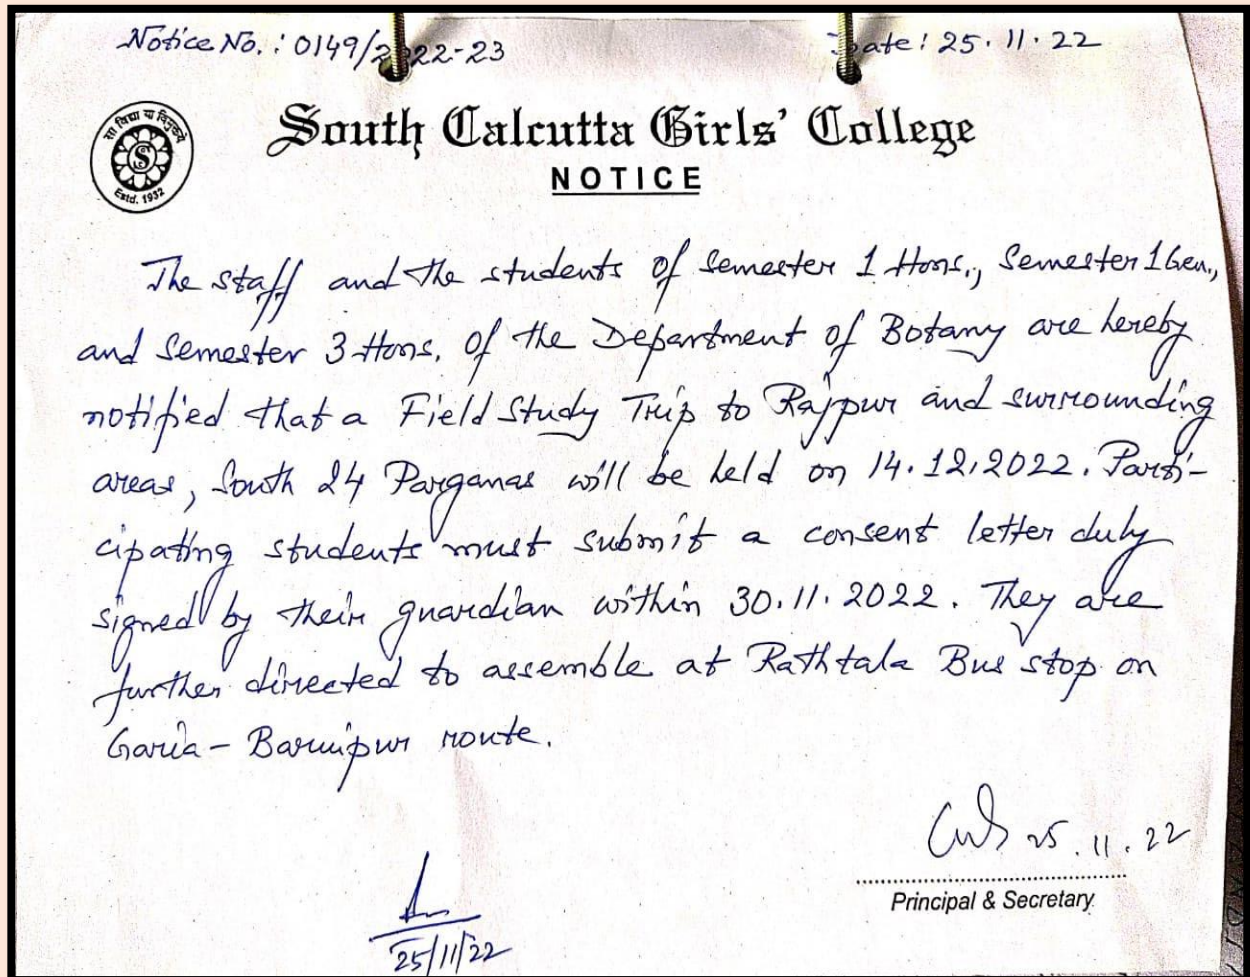 Notice No.: 0149/2022-23 Date: 25.11.22
सा विद्या या विमुक्तये
S
Estd. 1932
South Calcutta Girls' College
NOTICE
The staff and the students of Semester 1 Hons., Semester 1 Gen.,
and Semester 3 Hons. of the Department of Botany are hereby
notified that a Field Study Trip to Rajpur and surrounding
areas, South 24 Parganas will be held on 14.12.2022. Parti-
cipating students must submit a consent letter duly
signed by their guardian within 30.11.2022. They are
further directed to assemble at Rathtala Bus stop on
Garia - Baruipur route.
25.11.22
Principal & Secretary
25/11/22